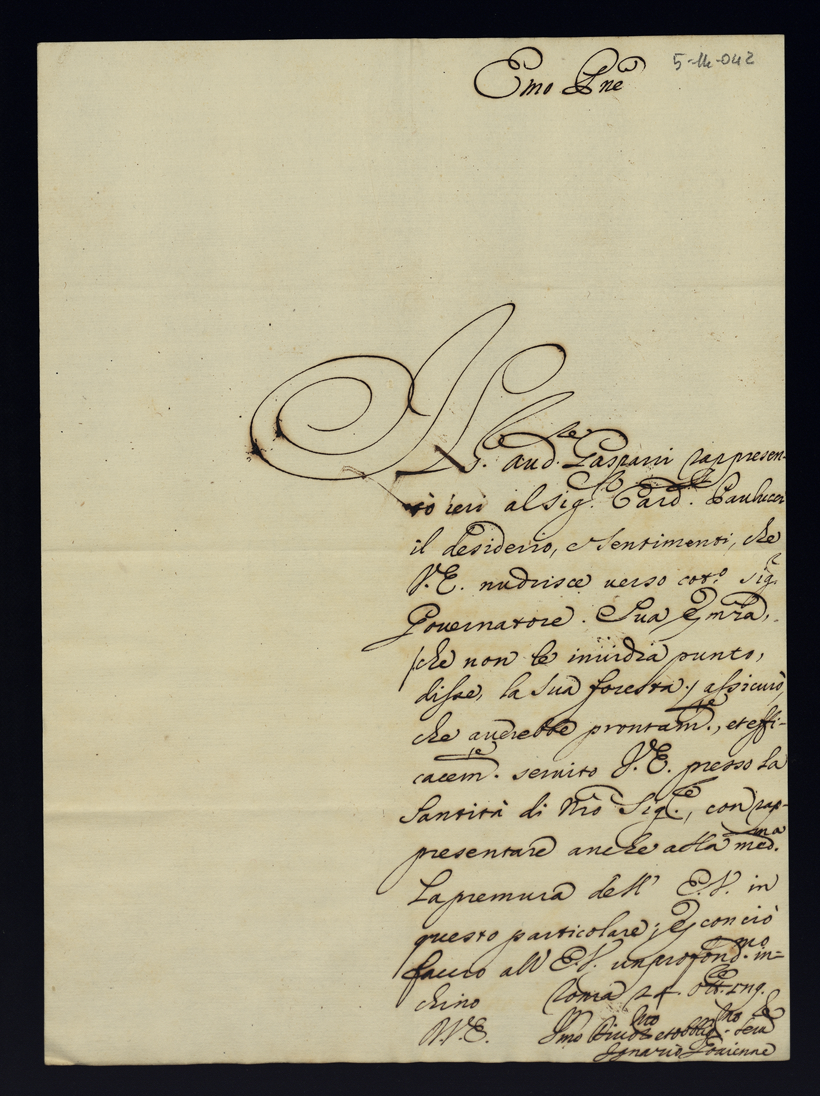 5-M-042
Emo Pne
Il Sr. Aud.re Gasparri rappresen-
tò ieri al Sig.r Card. Paulucci
il desiderio, e sentimenti, che
V.E. nudrisce verso cot.o Sig.r
Governatore. Sua Emza,
che non le invidia punto,
disse, la sua foresta, assicurò,
che avrebbe prontam.te, et effi-
cacem.te servito V.E. presso la
Santità di Nro Sig.re, con rap-
presentare anche alla med.ma
la premura dell' E.V. in
questo particolare; E con ciò
faccio all' E.V. un profond.mo in-
chino Roma 24 Ott.re
D.V.E.